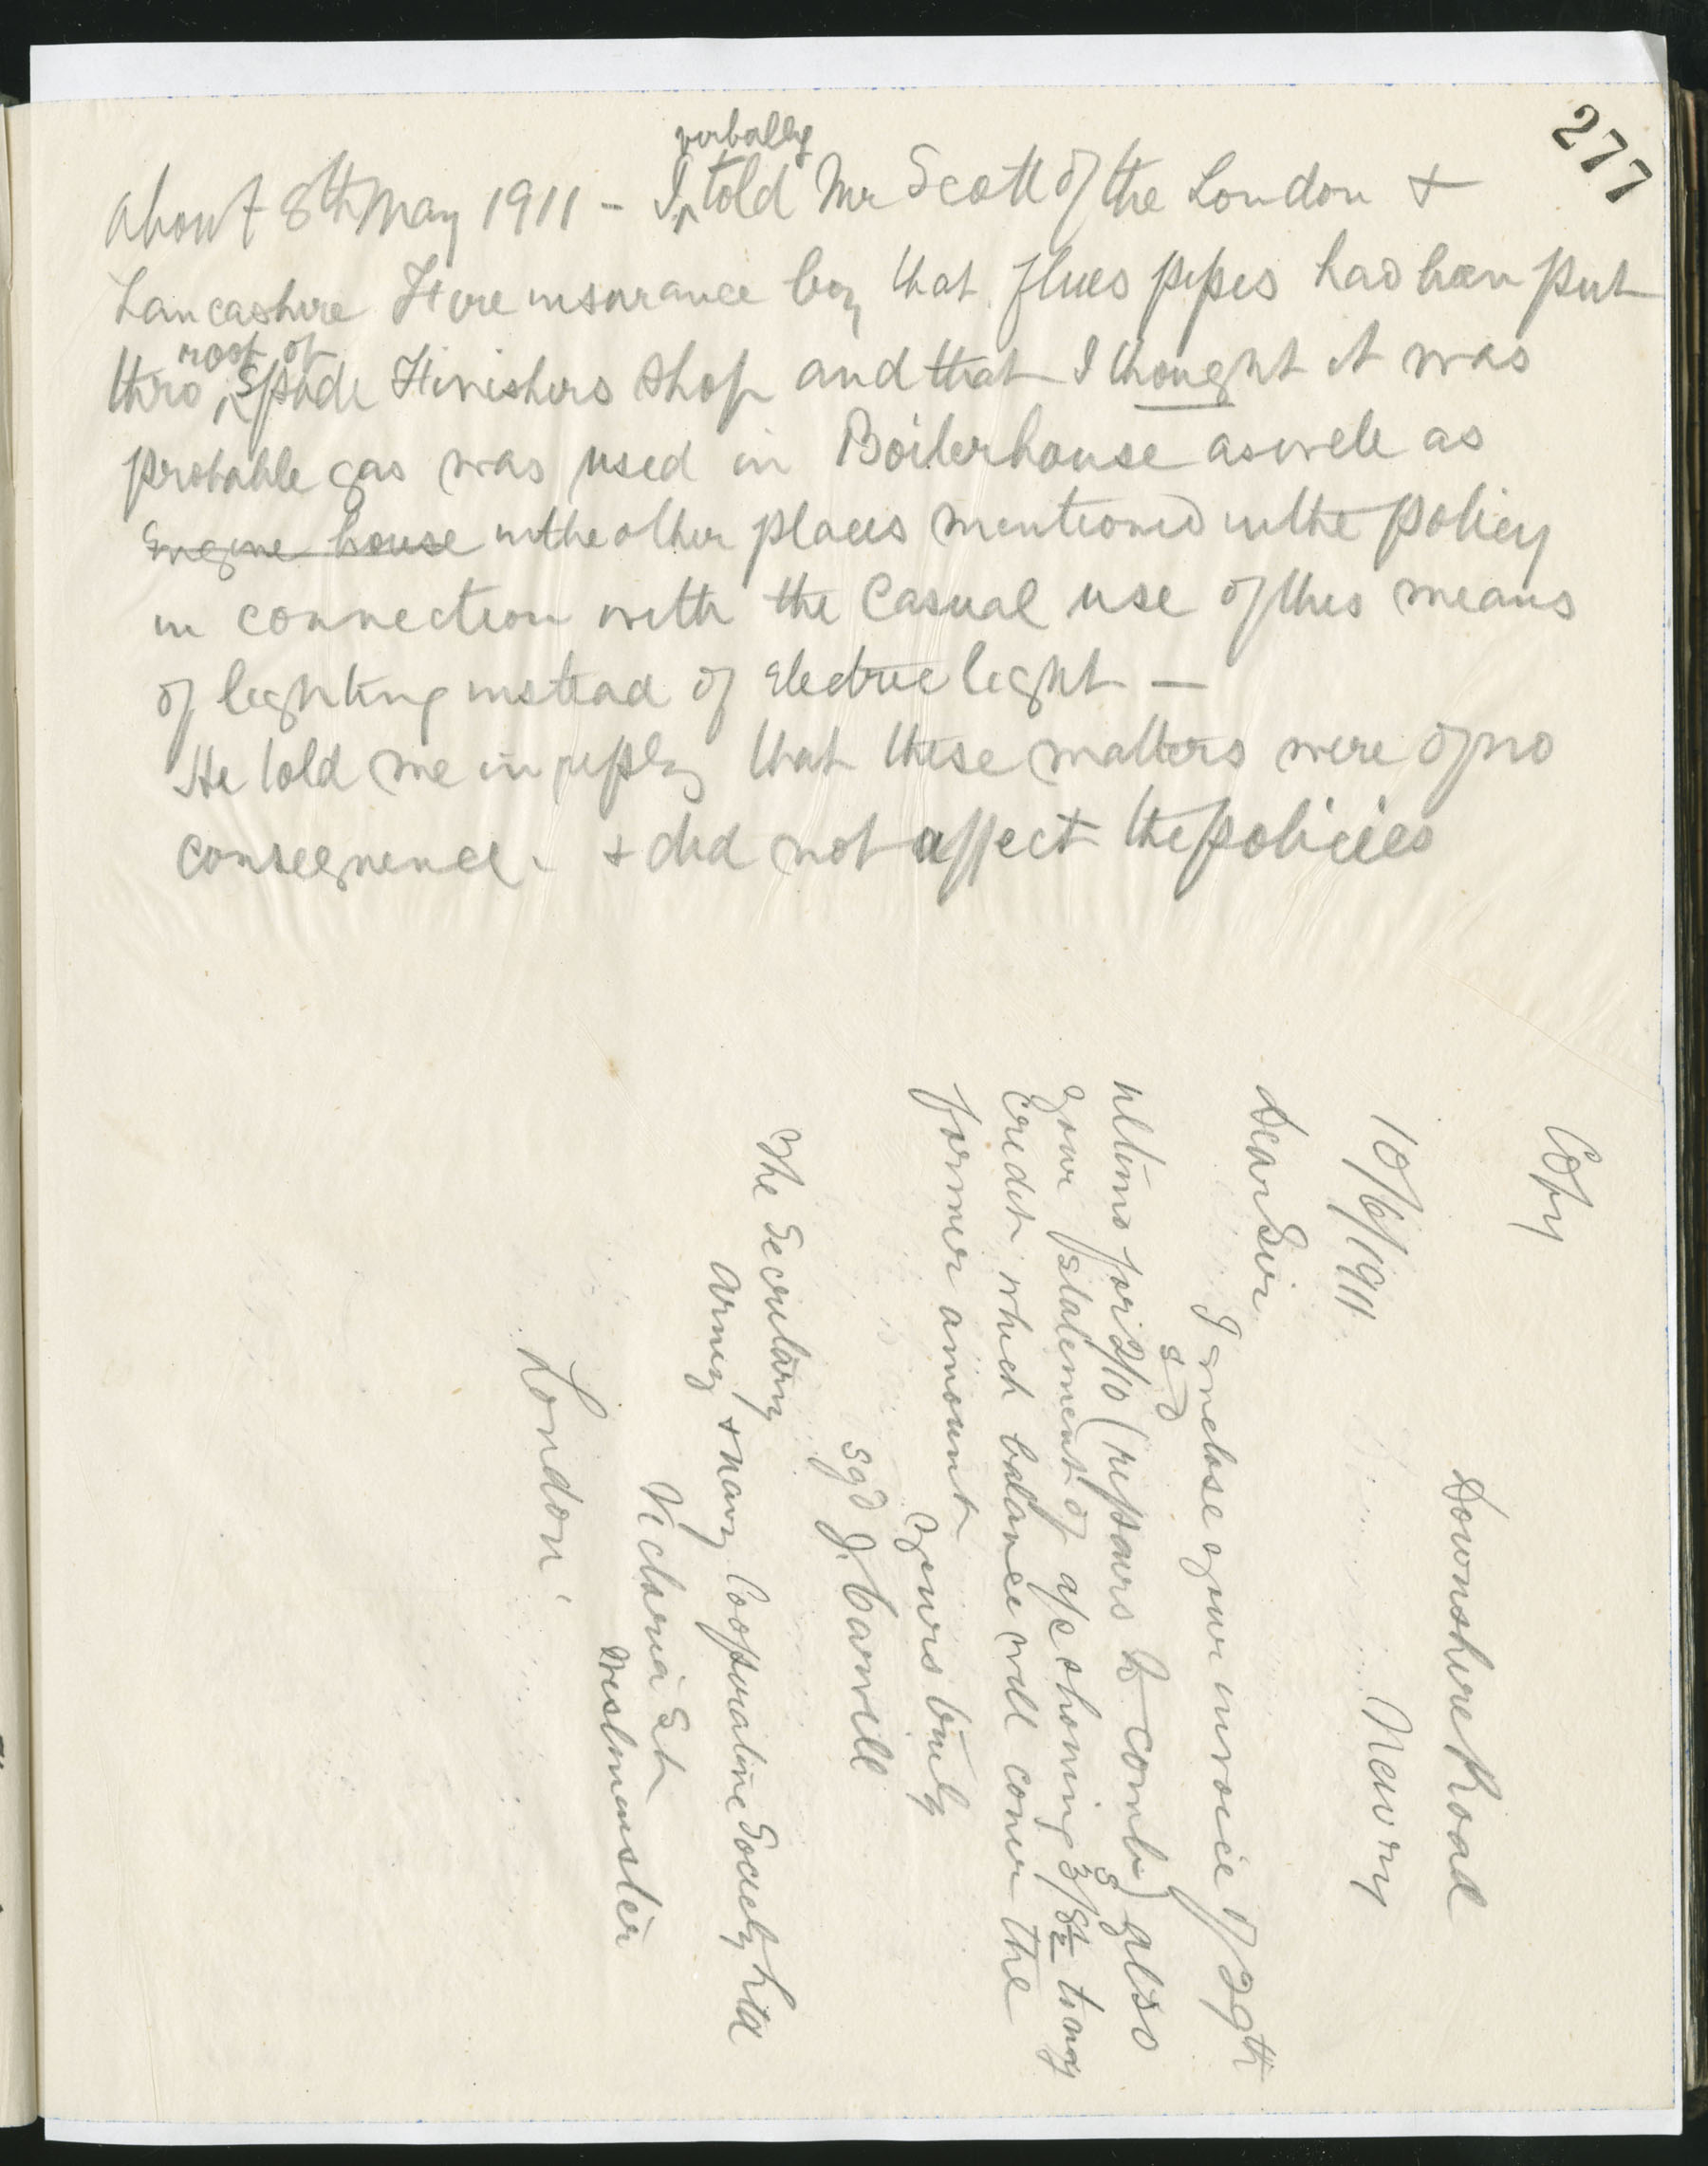 277
About 8th May 1911 - I verbally told Mr Scott of the London &
Lancashire Fire insurance Coy that flues pipes had been put
thro roof of Spade Finishers shop and that I thought it was
probable gas was used in Boilerhouse aswell as
Engine house in the other places mentioned in the policy
in connection with the Casual use of this means
of lighting instead of Electric light —
He told me in reply that these matters were of no
consequence. & did not affect the policies
Copy
Downshire Road
Newry
10/6/1911
Dear Sir
I enclose your invoice of 29th
ultimo for 2s/10d (repairs to comb) also
your statement of a/c showing 3s/8½d to my
credit which balance will cover the
former amount
Yours truly
sgd J. Carvill
The Secretary
Army & Navy Cooperative Society Ltd
Victoria St
Westminster
London